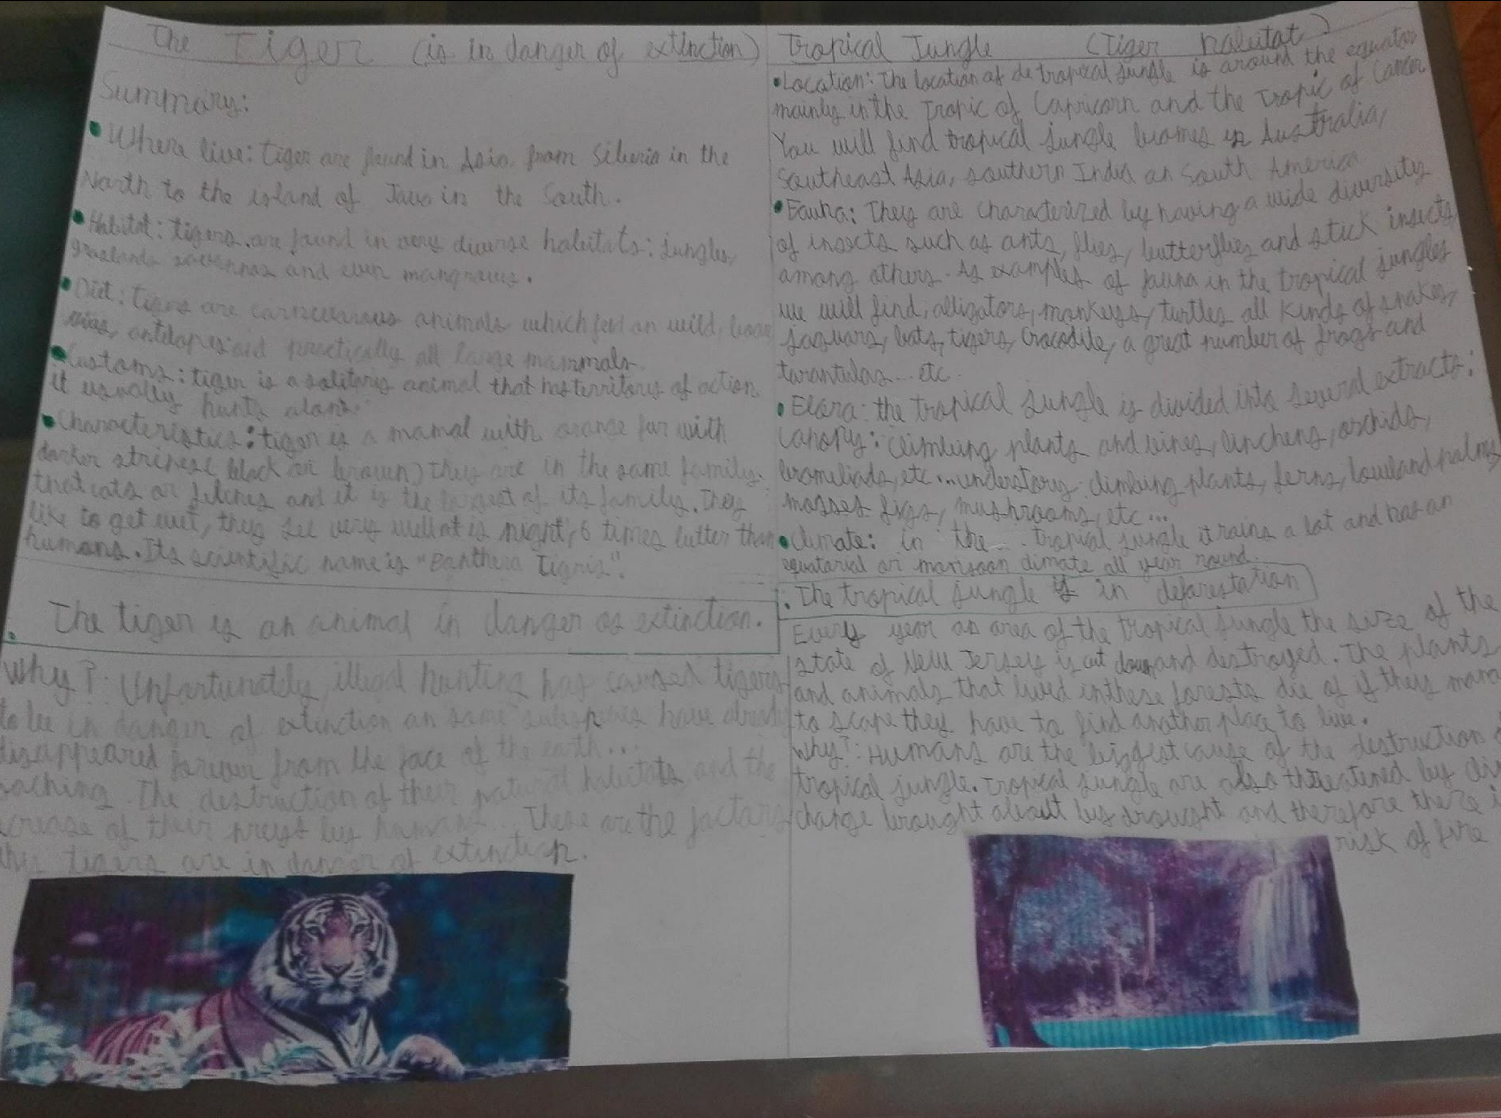 The Tiger (is in danger of extinction)
Summary:
Where live: tiger are found in Asia from Siberia in the
North to the island of Java in the South.
Habitat: tigers are found in very diverse habitats: jungles,
graslands savannas and even mangroves.
Diet: tigers are carnivorous animals which feed on wild
antilopes and practically all large mammals.
Customs: tiger is a solitary animal that his territory of action
it usually hunts alone.
Characteristics: tiger is a mamal with orange fur with
darker stripese (black or brown) they are in the same family
that cats or felines and it is the largest of its family. They
like to get wet, they see very well at is night, 6 times better than
humans. Its scientific name is "Banthera Tigris".
The tiger is an animal in danger os extinction.
Why?: Unfortunately, illegal hunting has caused tigers
to be in danger of extinction an some subspecies have already
disappeared forever from the face of the earth...
The destruction of their natural habitats and the
of their preys by humans. These are the factors
tigers are in danger of extinction.
Tropical Jungle (Tiger habitat)
Location: The location of de tropical jungle is around the equator
mainly in the Tropic of Capricorn and the Tropic of Cancer
You will find tropical jungle biomes in Australia,
Southeast Asia, southern India an South America
Fauna: They are characterized by having a wide diversity
of insects such as ants, flies, butterflies and stick insects,
among others. As examples of fauna in the tropical jungles
we will find, alligators, monkeys, turtles all kinds of snakes,
jaguars, bats, tigers, crocodile, a great number of frogs and
tarantulas... etc.
Elora: the tropical jungle is divided into several extracts:
Canopy: climbing plants and vines, linchens, orchids,
bromeliads, etc... understory climbing plants, ferns, lowland palms
mosses figs, mushrooms, etc...
Climate: in the... tropical jungle it rains a lot and has an
equatorial or monsoon climate all year round.
The tropical jungle is in deforestation
Every year an area of the tropical jungle the size of the
state of New Jersey is cut down and destroyed. The plants
and animals that lived in these forests die of if they mana
to scape they have to find another place to live.
Why?: Humans are the biggest cause of the destruction
tropical jungle. Tropical jungle are also threatened by
change brought about by drought and therefore there
risk of fire